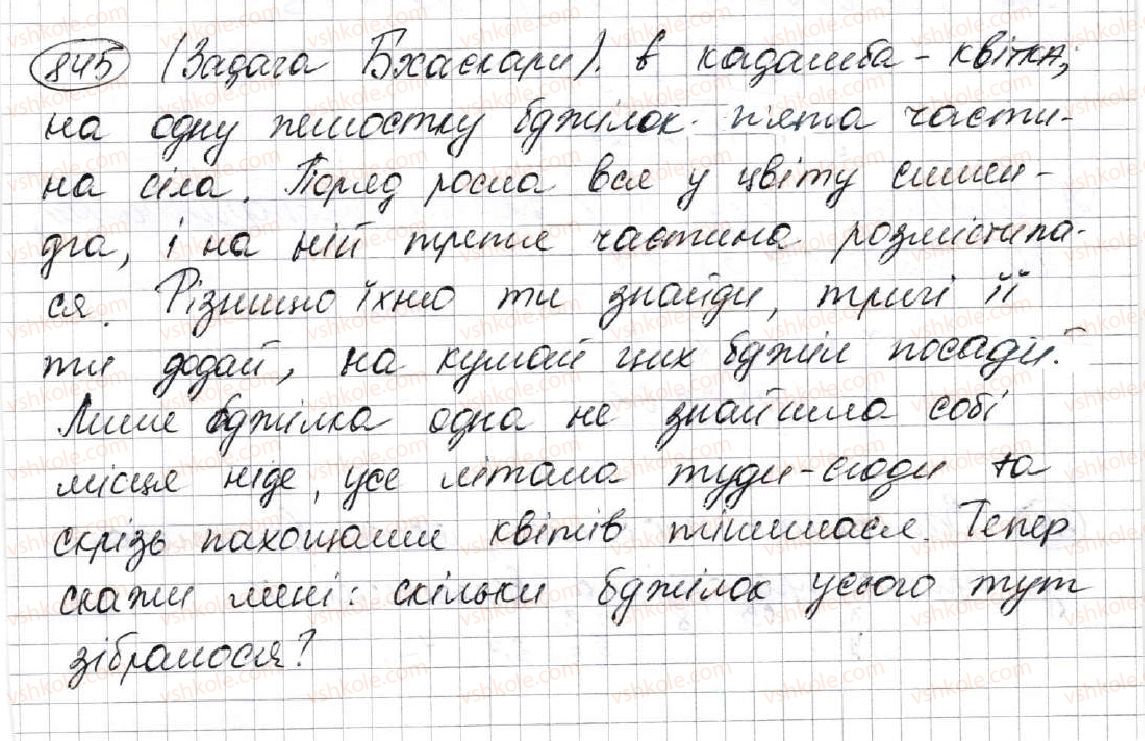 845 (Задача Бхаскари). Є кадамба - квітка;
на одну пелюстку бджілок п'ята части-
на сіла. Поряд росла вся у цвіту симен-
дга, і на ній третя частина розмістила-
ся. Різницю їхню ти знайди, тричі її
ти додай, на кутай цих бджіл посади.
Лише бджілка одна не знайшла собі
місця ніде, усе літала туди-сюди та
скрізь пахощами квітів тішилася. Тепер
скажи мені: скільки бджілок усього тут
зібралося?